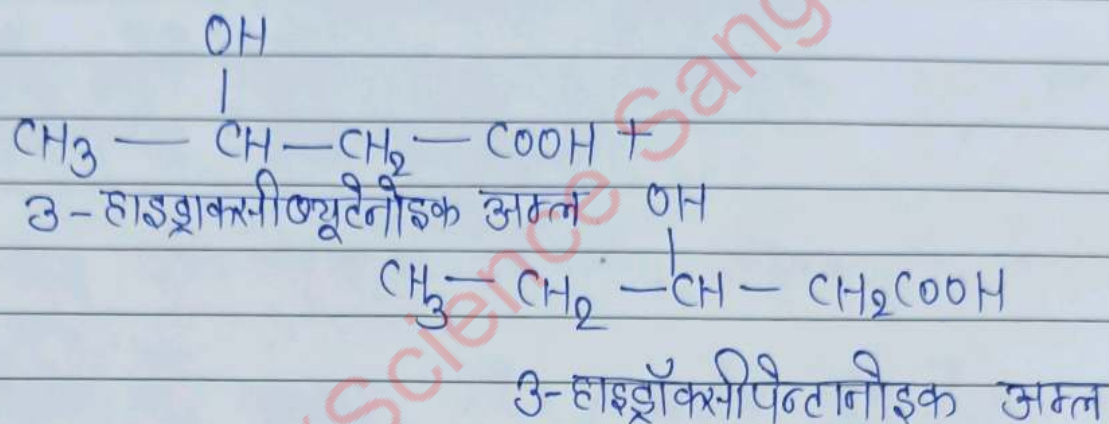 OH
|
CH3 — CH — CH2 — COOH +
3-हाइड्राक्सीब्यूटेनोइक अम्ल
OH
|
CH3 — CH2 — CH — CH2COOH
3-हाइड्रॉक्सीपेन्टानोइक अम्ल
Science Sang